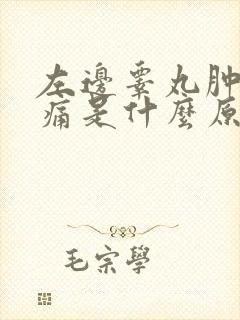 左邊睾丸肿
痛是什麼原
毛宗學